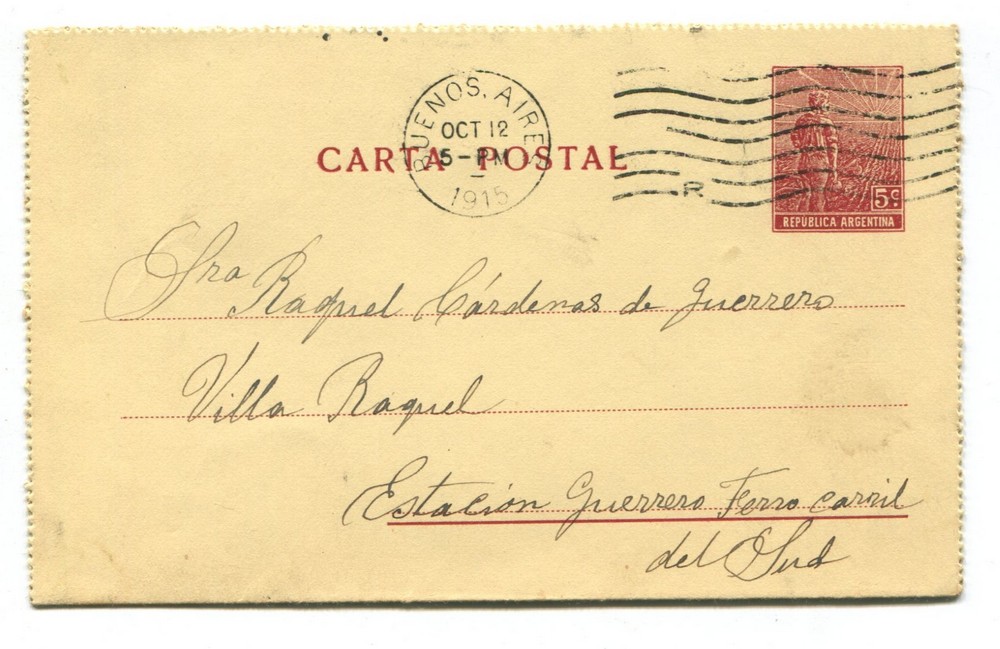 BUENOS. AIRES
OCT 12
5-PM
1915
CARTA POSTAL
R
5c
REPÚBLICA ARGENTINA
Sra Raquel Cárdenas de Guerrero
Villa Raquel
Estación Guerrero Ferro carril
del Sud